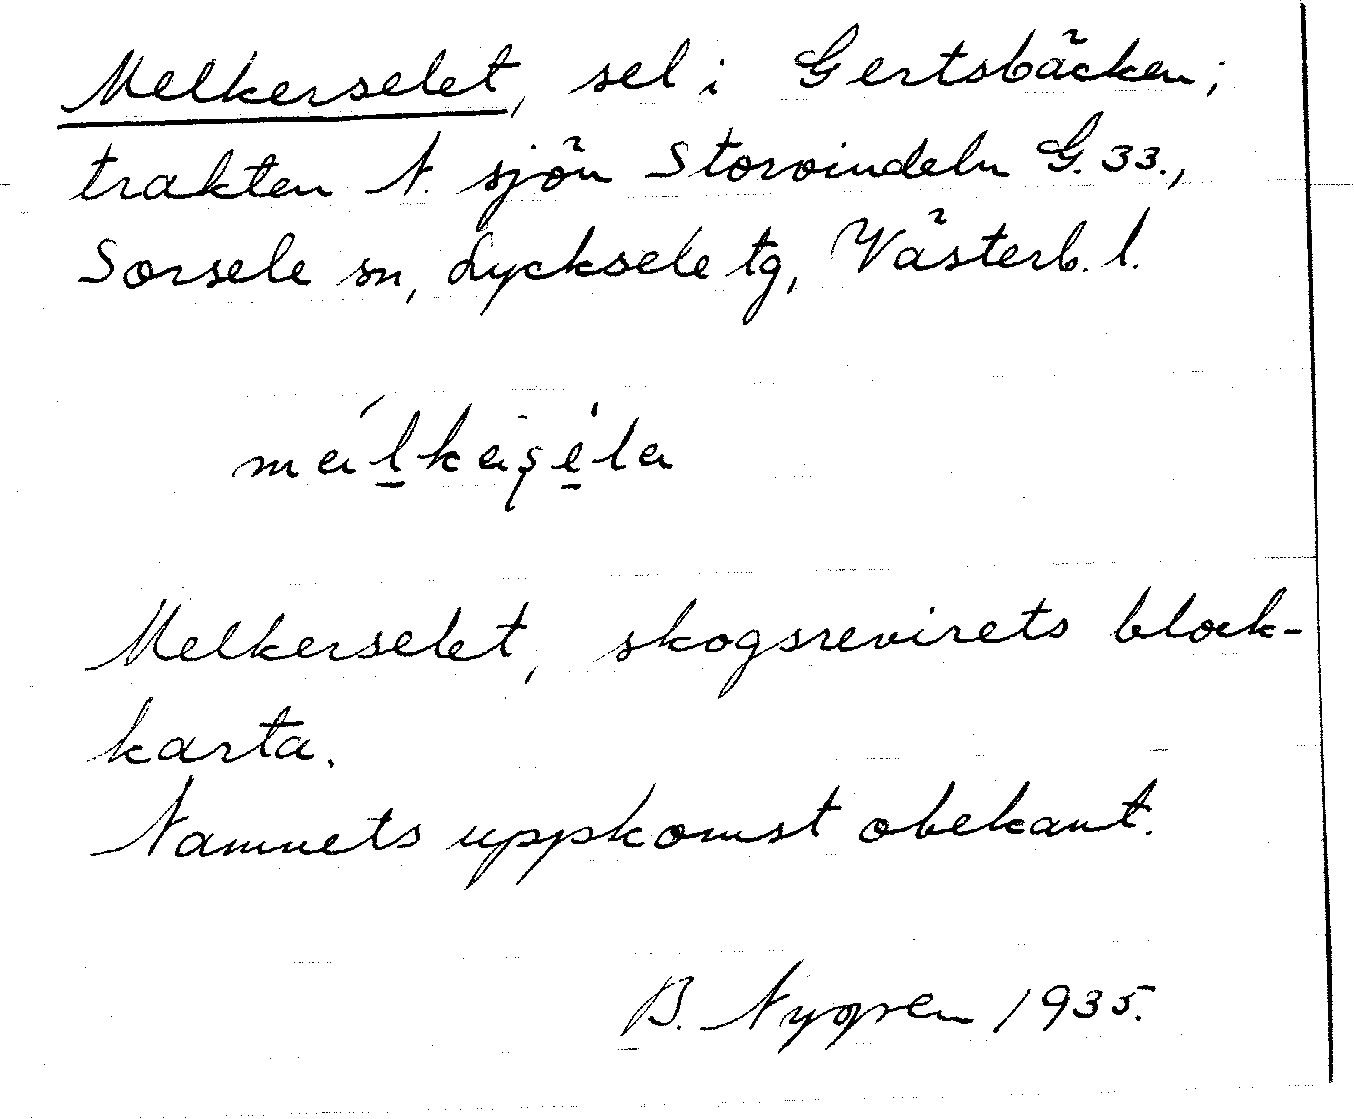 Melkerselet, sel i Gertsbäcken;
trakten N. sjön Storvindeln G. 33.,
Sorsele sn, Lycksele tg, Västerb. l.
Melkerselet, skogsrevirets block-
karta.
Namnets uppkomst obekant.
B. Nygren 1935.